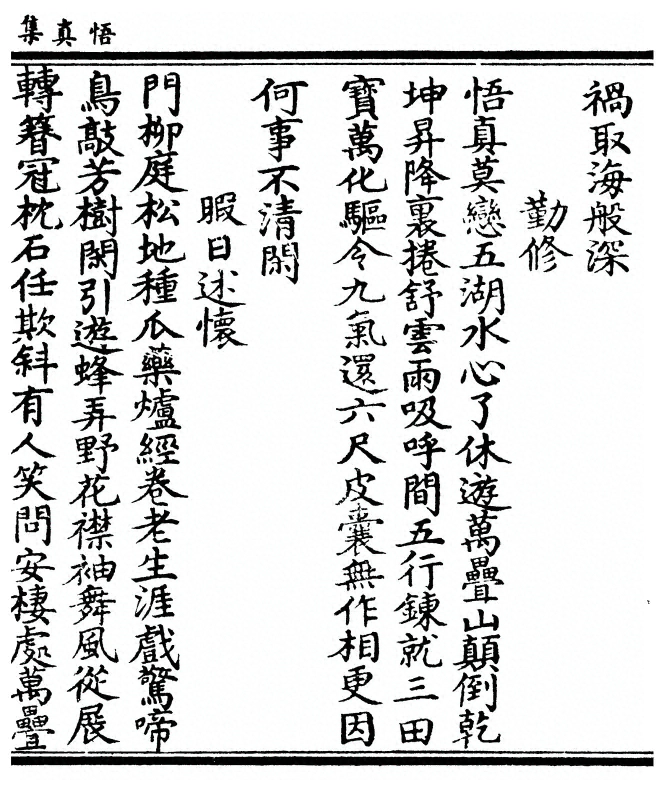 悟真集
禍取海般深
勤修
悟真莫戀五湖水心了休遊萬疊山顛倒乾
坤昇降裏捲舒雲雨吸呼間五行鍊就三田
寶萬化驅令九氣還六尺皮囊無作相更因
何事不清閑
暇日述懷
門柳庭松地種瓜藥爐經卷老生涯戲驚啼
鳥敲芳樹閑引遊蜂弄野花襟袖舞風從展
轉簪冠枕石任欺斜有人笑問安棲處萬疊